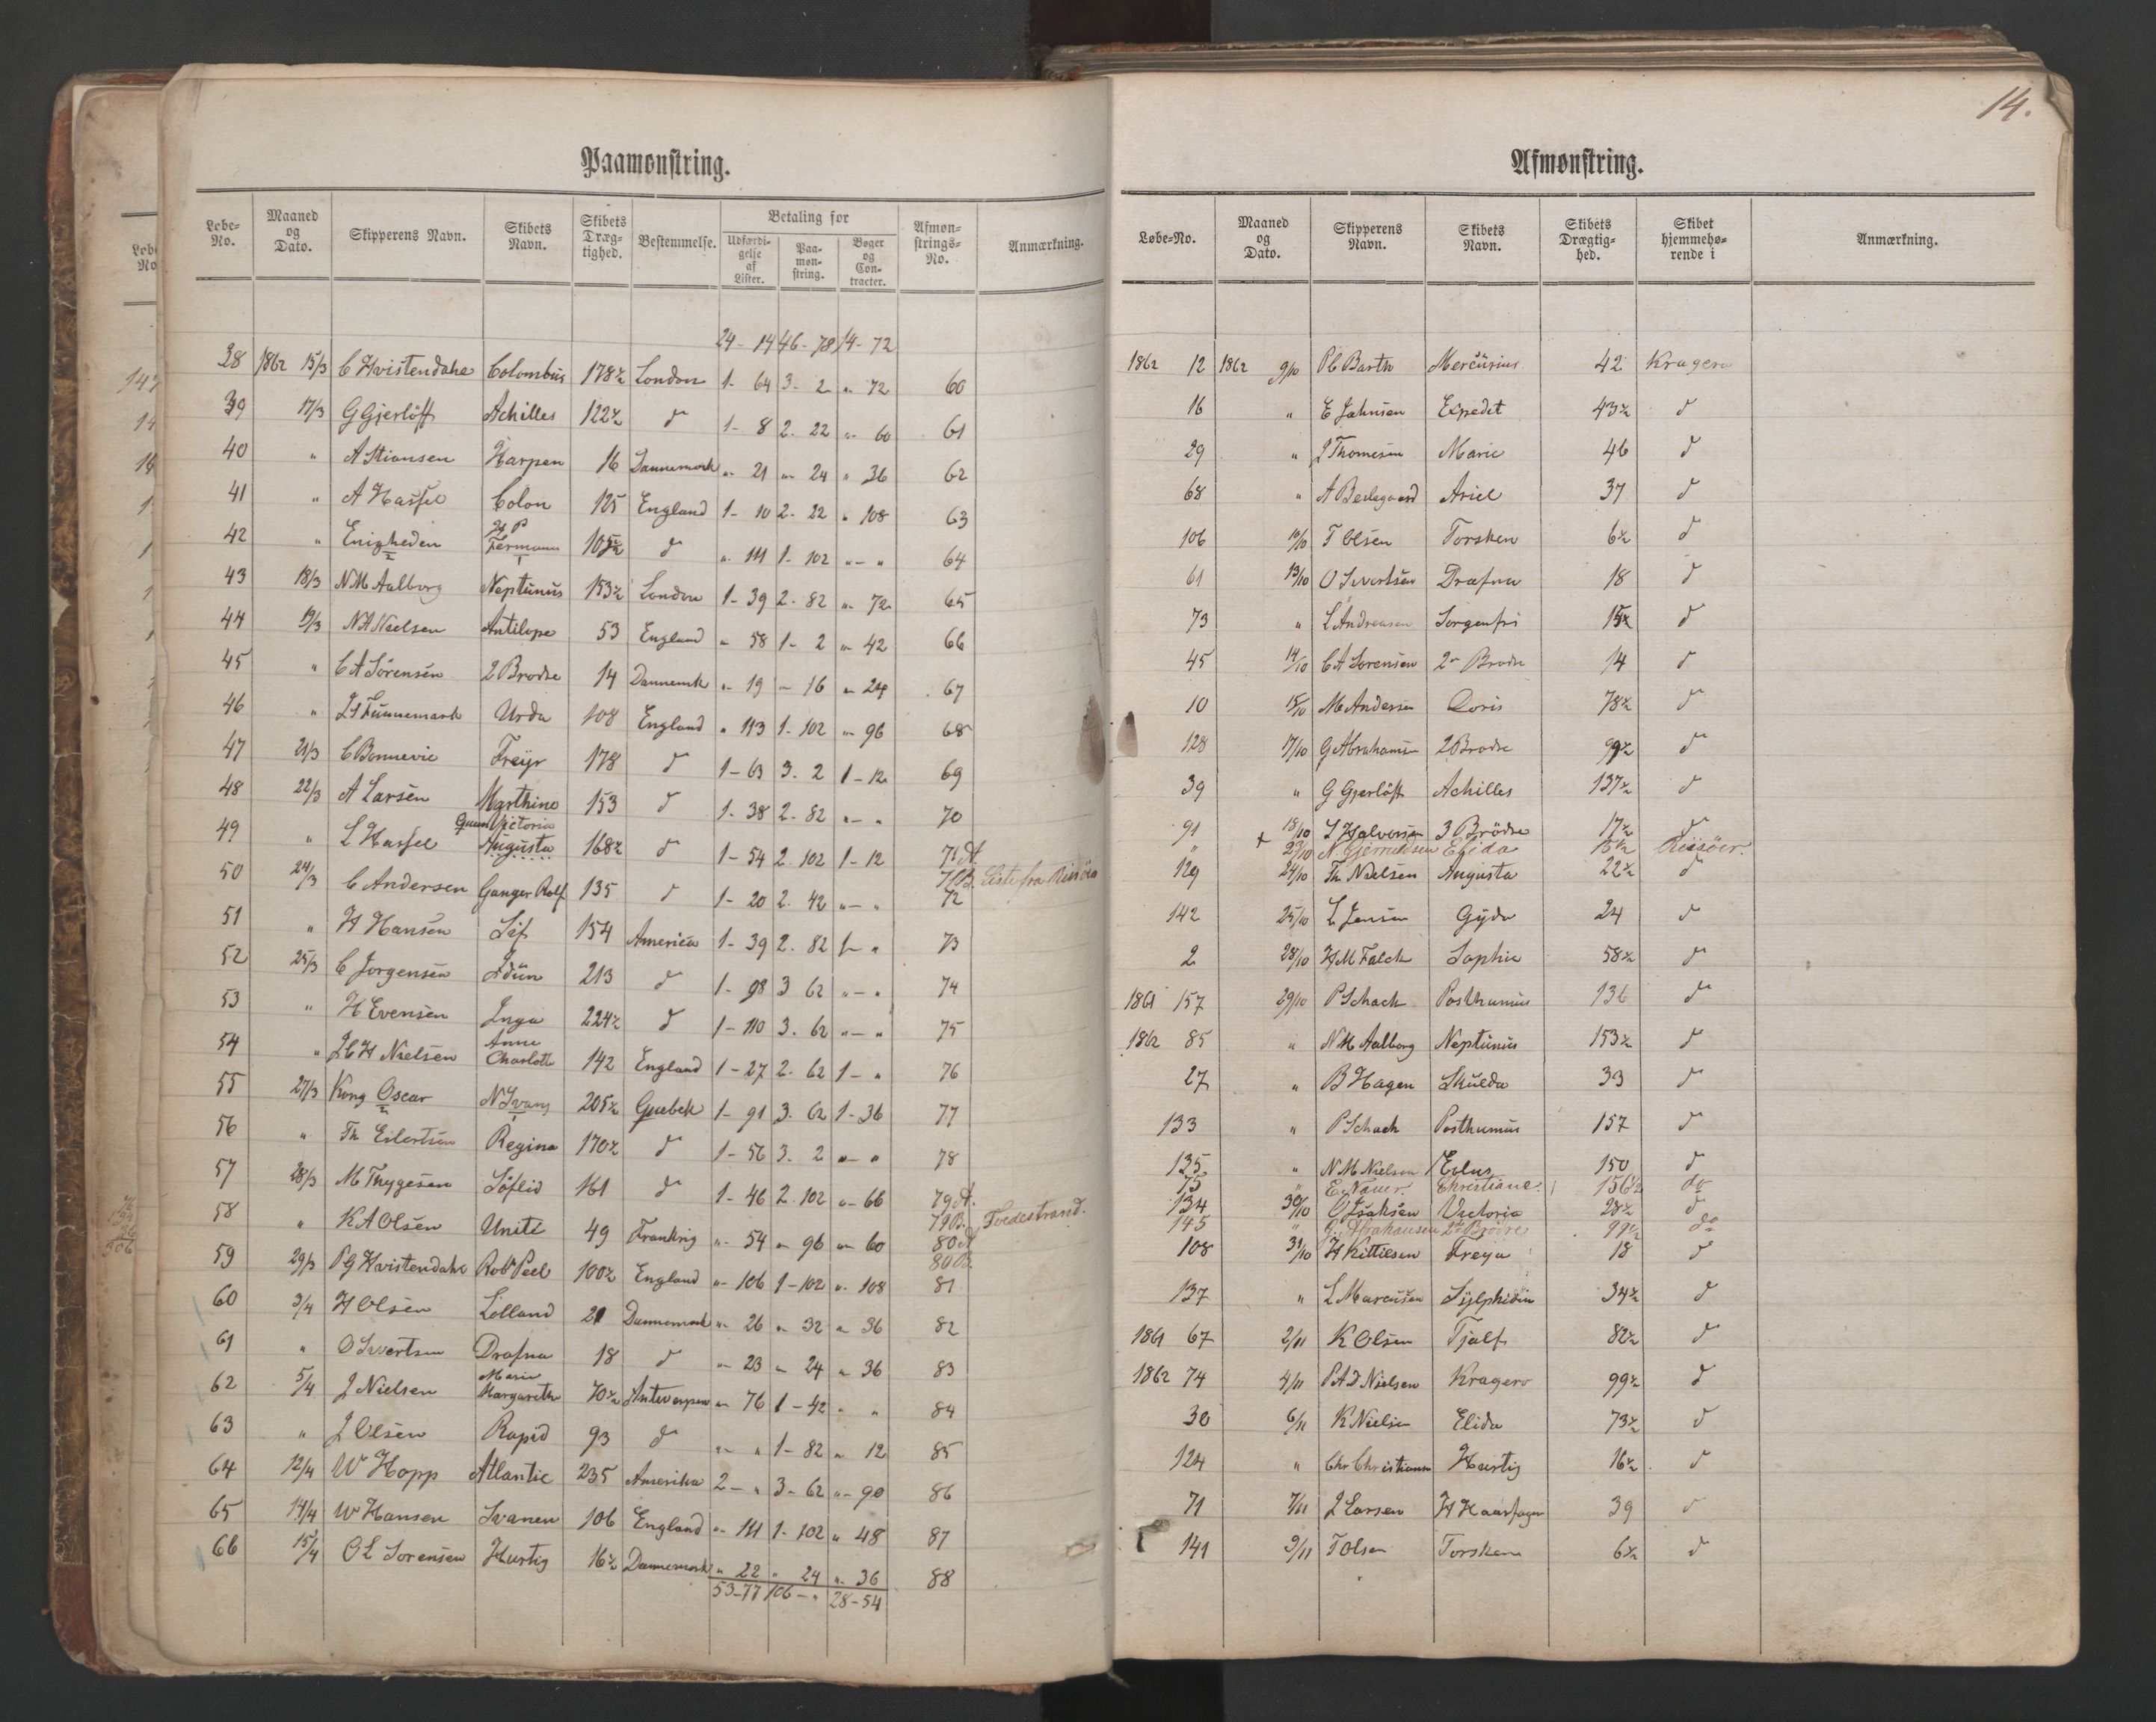 Paamønstring.
Løbe-No. | Maaned og Dato. | Skipperens Navn. | Skibets Navn. | Skibets Dræg-tighed. | Bestemmelse. | Betaling for | Udfærdi-gelse af Lister. | Paa-møn-string. | Bøger og Con-tracter. | Afmøn-strings-No. | Anmærkning.
24 - 14 | 46 - 78 | 14 - 72
38 | 1862 15/3 | C Hvistendahl | Colombus | 178½ | London | 1 - 64 | 3 - 2 | " 72 | 60
39 | 17/3 | G Gjerlöff | Achilles | 122½ | d | 1 - 8 | 2 - 22 | " 60 | 61
40 | " | A Stiansen | Harpen | 16 | Dannemark | " 21 | " 24 | " 36 | 62
41 | " | A Hassel | Colon | 125 | England | 1 - 10 | 2 - 22 | " 108 | 63
42 | " | Enigheden | H P Fermann | 105½ | d | " 111 | 1 - 102 | " - " | 64
43 | 18/3 | N M Aalborg | Neptunus | 153½ | London | 1 - 39 | 2 - 82 | " 72 | 65
44 | 19/3 | N A Nielsen | Antilope | 53 | England | " 58 | 1 - 2 | " 42 | 66
45 | " | C A Sörensen | 2 Brödre | 14 | Dannemk | " 19 | " 16 | " 24 | 67
46 | " | Funnemark | Urda | 108 | England | " 113 | 1 - 102 | " 96 | 68
47 | 21/3 | C Bonnevie | Freyr | 178 | d | 1 - 63 | 3 - 2 | 1 - 12 | 69
48 | 22/3 | A Larsen | Marthine | 153 | d | 1 - 38 | 2 - 82 | " - " | 70
49 | " | L Hassel | Queen Victoria Augusta | 168½ | d | 1 - 54 | 2 - 102 | 1 - 12 | 71 A.
71 B. | Liste fra Risöer
50 | 24/3 | C Andersen | Ganger Rolf | 135 | d | 1 - 20 | 2 - 42 | " - " | 72
51 | " | H Hansen | Sif | 154 | America | 1 - 39 | 2 - 82 | 1 - " | 73
52 | 25/3 | C Jorgensen | Idun | 213 | d | 1 - 98 | 3 62 | " - " | 74
53 | " | H Evensen | Inga | 224½ | d | 1 - 110 | 3 - 62 | " - " | 75
54 | " | J C H Nielsen | Anne Charlotte | 142 | England | 1 - 27 | 2 - 62 | 1 - " | 76
55 | 27/3 | Kong Oscar | N Ivans | 205½ | Quebek | 1 - 91 | 3 - 62 | 1 - 36 | 77
56 | " | Th Eilertsen | Regina | 170½ | d | 1 - 56 | 3 - 2 | " - " | 78
57 | 28/3 | M Thygesen | Söflid | 161 | d | 1 - 46 | 2 - 102 | " 66 | 79 A.
79 B. | Tvedestrand.
58 | " | K A Olsen | Unité | 49 | Frankrig | " 54 | " 96 | " 60 | 80 A
80 B.
59 | 29/3 | P G Hvistendahl | Robt Peel | 100½ | England | " 106 | 1 - 102 | " 108 | 81
60 | 3/4 | H Olsen | Lolland | 21 | Dannemark | " 26 | " 32 | " 36 | 82
61 | " | O Sivertsen | Drafna | 18 | d | " 23 | " 24 | " 36 | 83
62 | 5/4 | J Nielsen | Maria Margarethe | 70½ | Antwerpen | " 76 | 1 - 42 | " " | 84
63 | " | J Olsen | Rapid | 93 | d | " " | 1 - 82 | " 12 | 85
64 | 12/4 | W Hopp | Atlantic | 235 | Amerika | 2 - " | 3 - 62 | " 90 | 86
65 | 14/4 | W Hansen | Svanen | 106 | England | " 111 | 1 - 102 | " 48 | 87
66 | 15/4 | O L Sorensen | Hurtig | 16½ | Dannemark | " 22 | " 24 | " 36 | 88
53 - 77 | 106 - " | 28 - 54
14.
Afmønstring.
Løbe-No. | Maaned og Dato. | Skipperens Navn. | Skibets Navn. | Skibets Drægtig-hed. | Skibet hjemmehø-rende i | Anmærkning.
1862 12 | 1862 9/10 | P C Barth | Mercurius | 42 | Kragero
16 | " | E Jahnsen | Expedit | 43½ | d
29 | " | J Thomesen | Marie | 46 | d
68 | " | A Berlegaard | Ariel | 37 | d
106 | 10/10 | T Olsen | Torsken | 6½ | d
61 | 13/10 | O Sivertsen | Drafna | 18 | d
73 | " | L Andreasen | Sorgenfri | 15½ | d
45 | 14/10 | C A Sorensen | 2 Brodre | 14 | d
10 | 15/10 | M Andersen | Doris | 78½ | d
128 | 17/10 | G Abrahamsen | 2 Brodre | 99½ | d
39 | " | G Gjerlöff | Achilles | 137½ | d
91 | 18/10 | S Halvorsen | 3 Brödre | 17½ | d
" | + 23/10 | N Gjerrudsen | Elida | 15½ | Riisöer.
129 | 24/10 | Th Nielsen | Augusta | 22½ | d
142 | 25/10 | L Jensen | Gyda | 24 | d
2 | 28/10 | H M Falck | Sophie | 58½ | d
1861 157 | 29/10 | P Schack | Posthumus | 136 | d
1862 85 | " | N M Aalborg | Neptunus | 153½ | d
27 | " | B Hagen | Skulda | 33 | d
133 | " | P Schack | Posthumus | 157 | d
135 | " | N M Nielsen | Eolus | 150 | d
75 | " | E. Nauer. | Christiane. | 156½ | do
134 | 30/10 | O Isaksen | Victoria | 28½ | d
145 | " | G. Abrahamsen | 2de Brödre | 99½ | do
108 | 31/10 | H Kittilsen | Freya | 18 | d
137 | " | L Marcusen | Sylphiden | 34½ | d
1861 67 | 2/11 | K Olsen | Tjalf | 82½ | d
1862 74 | 4/11 | P A D Nielsen | Kragero | 99½ | d
30 | 6/11 | K Nielsen | Elida | 73½ | d
124 | " | Chr Christiansen | Hurtig | 16½ | d
71 | 7/11 | J Larsen | H Haarfager | 39 | d
141 | 9/11 | T Olsen | Torsken | 6½ | d